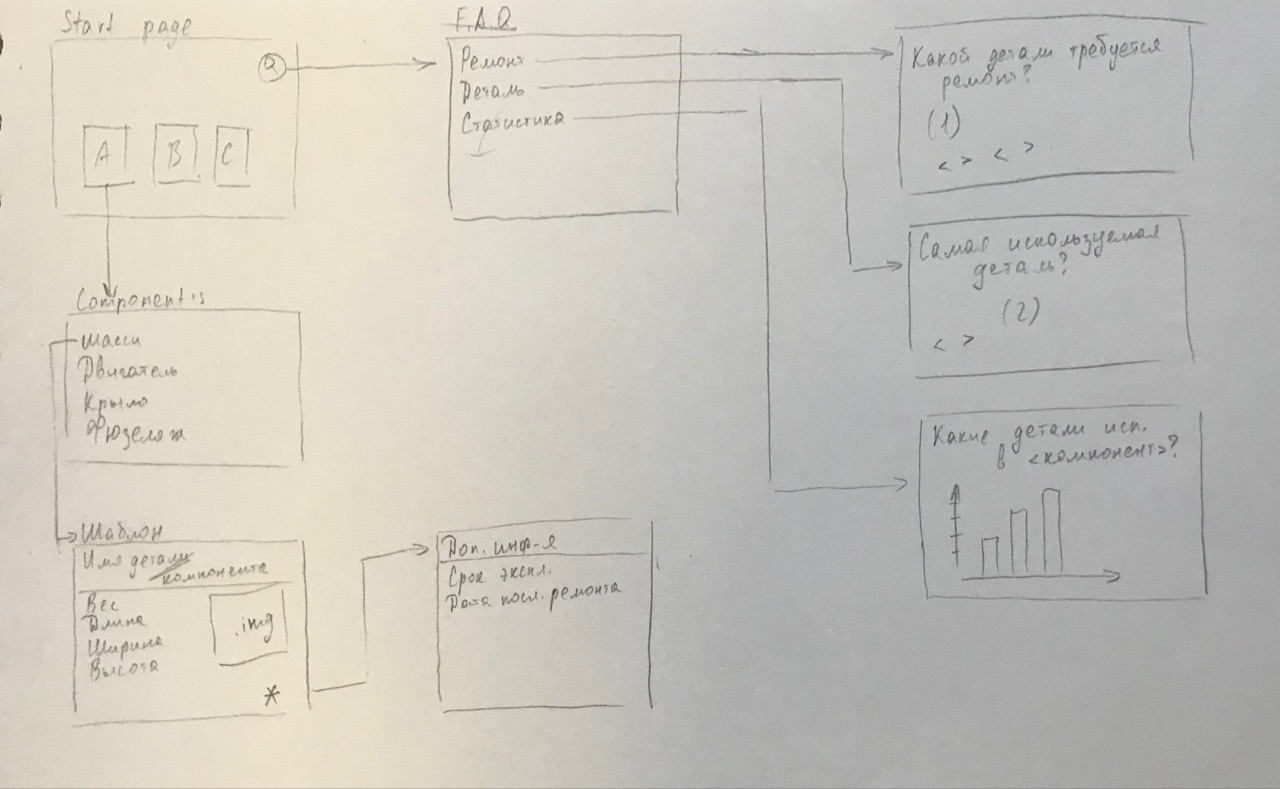 Start page
Q
A B C
F.A.Q
Ремонт
Деталь
Статистика
Какой детали требуется
ремонт?
(1)
< > < >
Самая используемая
деталь?
(2)
< >
Какие детали исп.
в <компонент>?
Component's
Шасси
Двигатель
Крыло
Фюзеляж
Шаблон
Имя детали
компонента
Вес
Длина
Ширина
Высота
.img
*
Доп. инф-я
Срок экспл.
Дата посл. ремонта